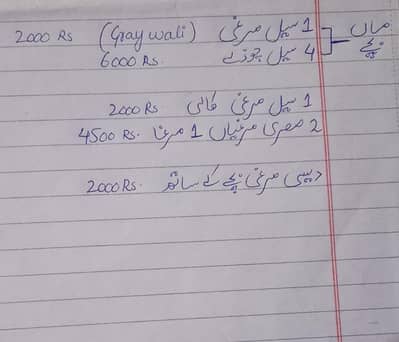 ماں 1 سیل مرغی (Gray wali) 2000 Rs
بچے 4 سیل چوزے 6000 Rs.
1 سیل مرغی کالی 2000 Rs
2 مصری مرغیاں 1 مرغا 4500 Rs.
دیسی مرغی بچے کے ساتھ 2000 Rs.